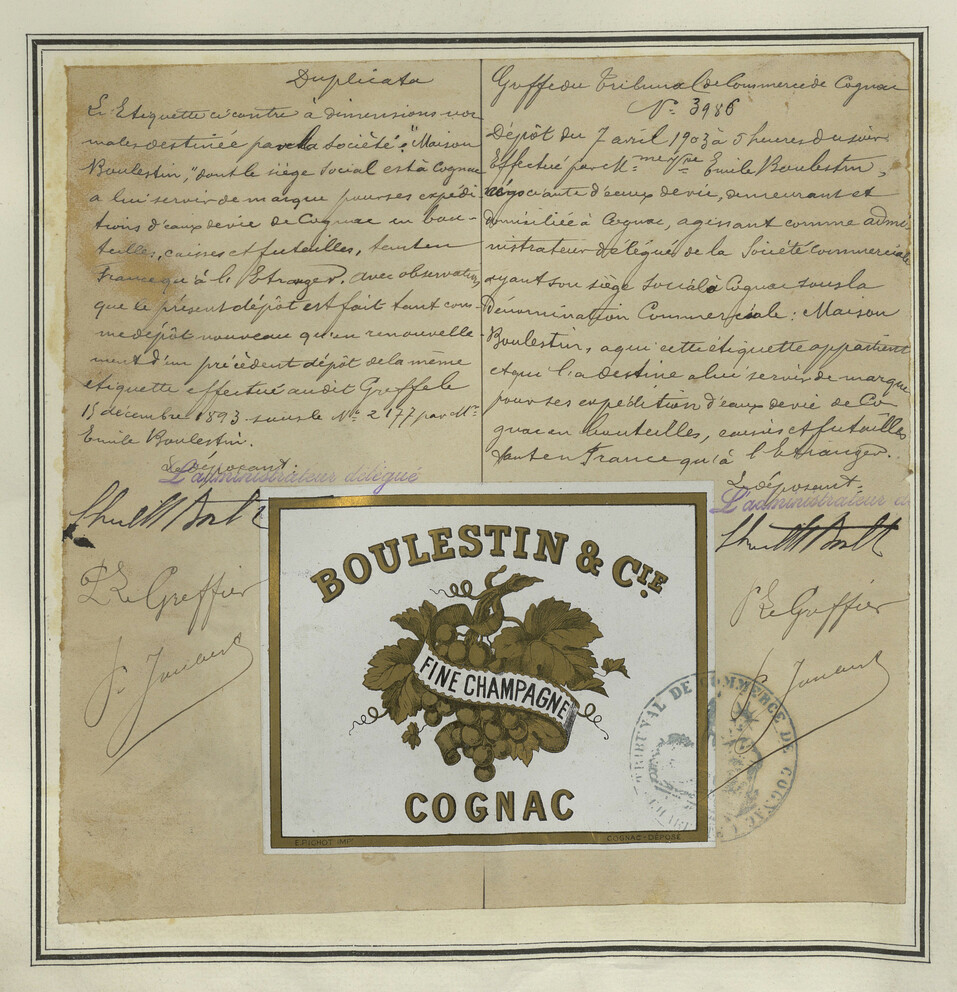 Duplicata
L'Etiquette ci contre à dimensions nor-
males destinée par la Société "Maison
Boulestin," dont le siège Social est à Cognac
a lui servir de marque pour ses expédi-
tions d'eaux de vie de Cognac en bou-
teilles, caisses et futailles, tant en
France qu'à l'Etranger. avec observation
que le présent dépôt est fait tant com-
me dépôt nouveau qu'en renouvelle-
ment d'un précédent dépôt de la même
etiquette effectué audit Greffe le
15 décembre 1893 sous le No 2177 par Mr
Emile Boulestin.
Le déposant.
L'administrateur délégué
P Le Greffier
Greffe du Tribunal de Commerce de Cognac
No 3986
Dépôt du 7 avril 1903 à 5 heures du soir
Effectué par Mme Vve Emile Boulestin,
négociante d'eaux de vie, demeurant et
domiciliée à Cognac, agissant comme admi-
nistrateur délégué de la Société Commerciale
ayant son siège social à Cognac sous la
Dénomination Commerciale: Maison
Boulestin, a qui cette étiquette appartient
et qui l'a destine a lui servir de marque
pour ses expédition d'eaux de vie de Co-
gnac en bouteilles, caisses et futailles
tant en France qu'à l'étranger.
Le déposant.
L'administrateur d
P Le Greffier
BOULESTIN & CIE
FINE CHAMPAGNE
COGNAC
E.PICHOT IMP.
COGNAC-DÉPOSÉ
TRIBUNAL DE COMMERCE DE COGNAC